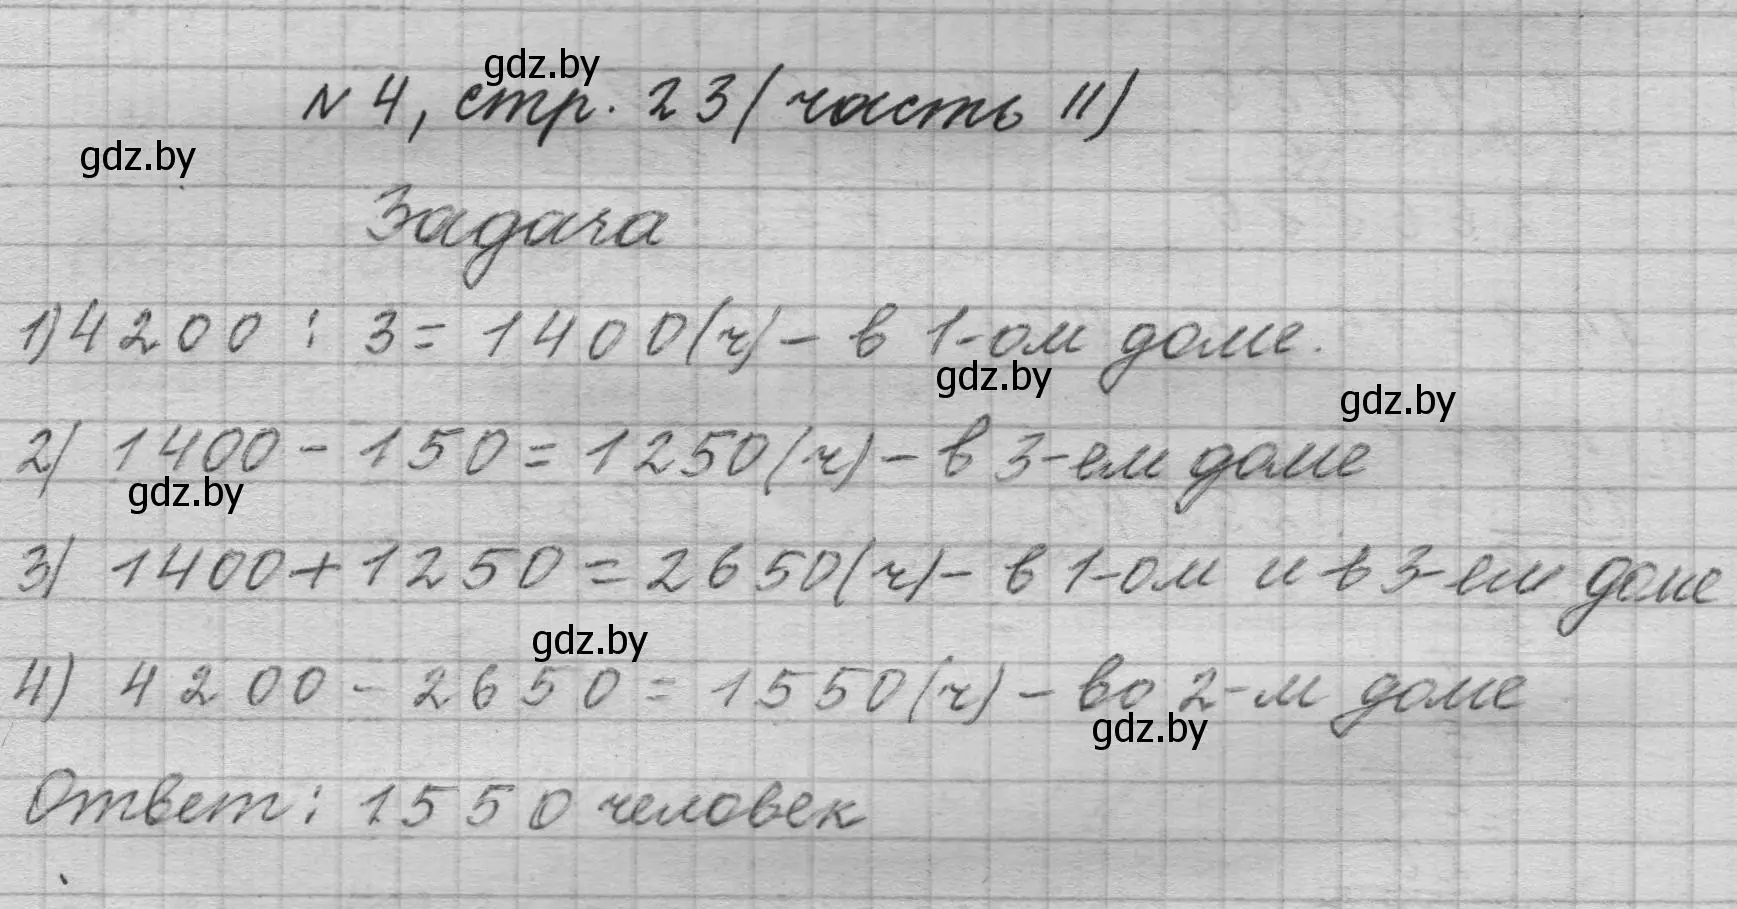 gdz.by
N 4, стр. 23 (часть II)
gdz.by
Задача
1) 4200 : 3 = 1400 (ч) - в 1-ом доме.
gdz.by
gdz.by
2) 1400 - 150 = 1250 (ч) - в 3-ем доме
gdz.by
3) 1400 + 1250 = 2650 (ч) - в 1-ом и в 3-ем доме
gdz.by
4) 4200 - 2650 = 1550 (ч) - во 2-м доме
gdz.by
Ответ: 1550 человек